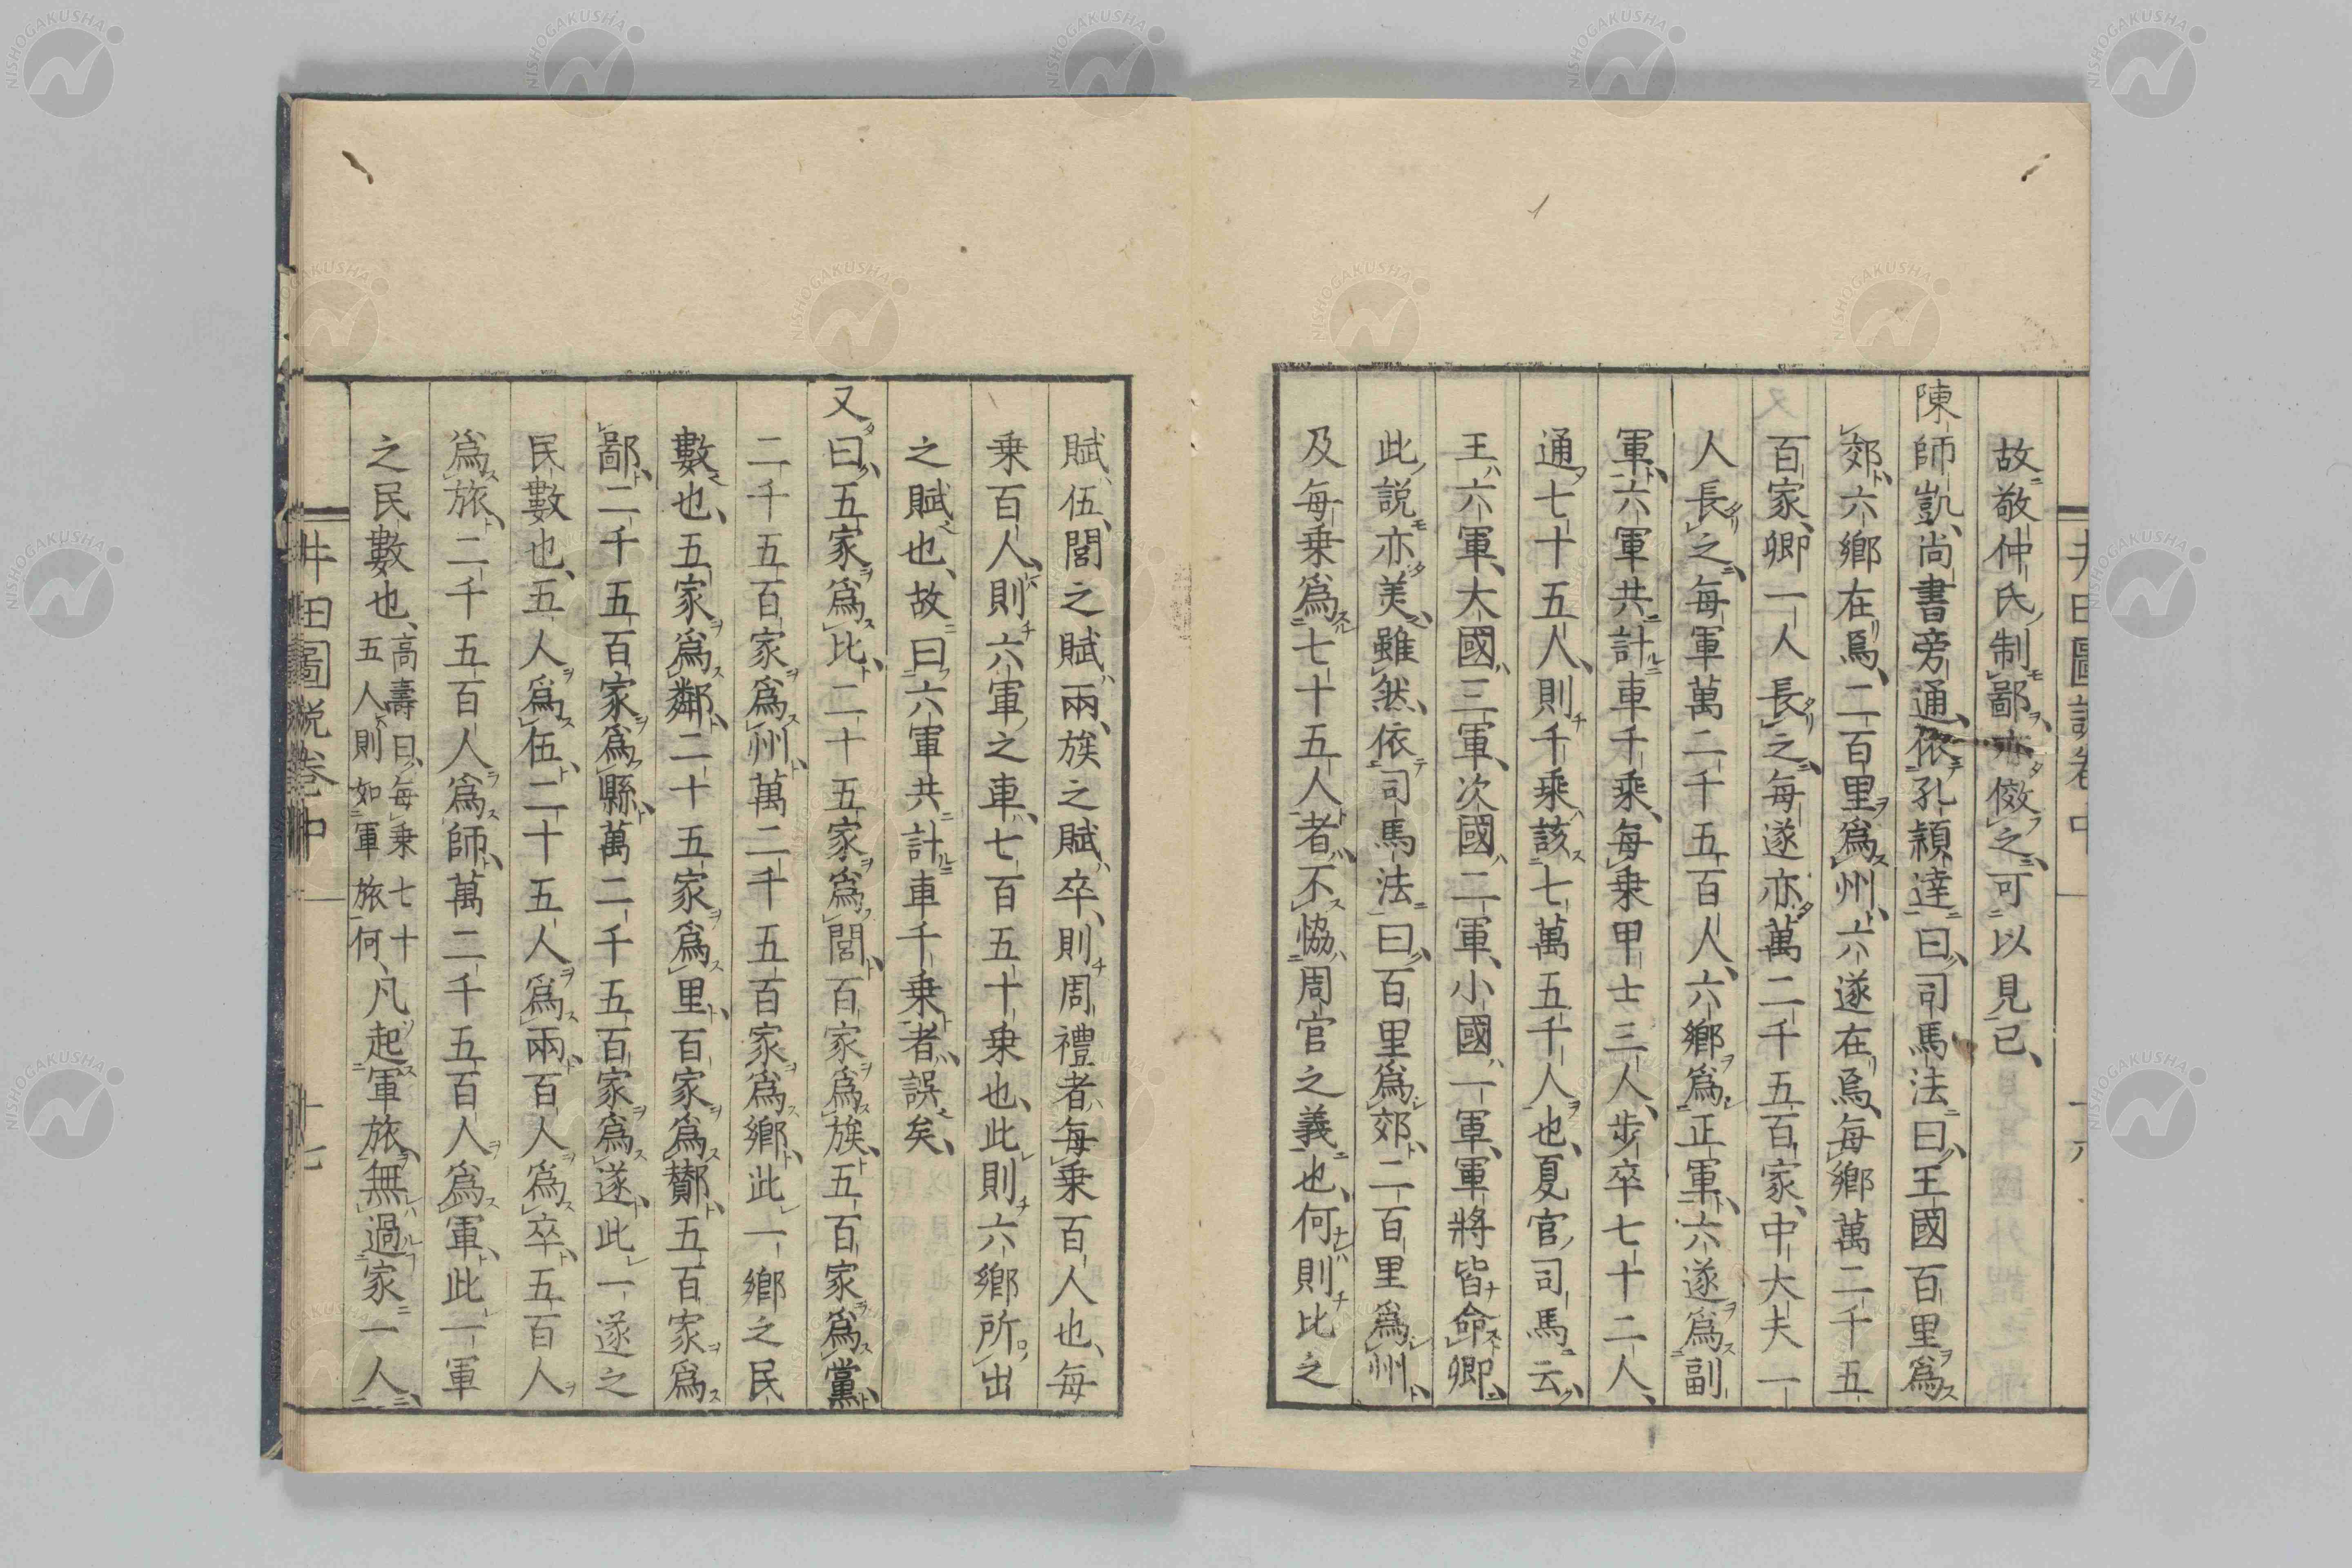 故敬仲氏制鄙亦倣之可以見已
陳師凱尚書旁通依孔穎達曰司馬法曰王國百里爲
郊六鄉在焉二百里爲州六遂在焉每鄉萬二千五
百家卿一人長之每遂亦萬二千五百家中大夫一
人長之每軍萬二千五百人六鄉爲正軍六遂爲副
軍六軍共計車千乘每乘甲士三人步卒七十二人
通七十五人則千乘該七萬五千人也夏官司馬云
王六軍大國三軍次國二軍小國一軍軍將皆命卿
此説亦美雖然依司馬法曰百里爲郊二百里爲州
及每乘爲七十五人者不恊周官之義也何則比之
賦伍閭之賦兩族之賦卒則周禮者每乘百人也每
乘百人則六軍之車七百五十乘也此則六鄉所出
之賦也故曰六軍共計車千乘者誤矣
又曰五家爲比二十五家爲閭百家爲族五百家爲黨
二千五百家爲州萬二千五百家爲鄉此一鄉之民
數也五家爲鄰二十五家爲里百家爲酇五百家爲
鄙二千五百家爲縣萬二千五百家爲遂此一遂之
民數也五人爲伍二十五人爲兩百人爲卒五百人
爲旅二千五百人爲師萬二千五百人爲軍此一軍
之民數也高壽曰每乘七十五人則如軍旅何凡起軍旅無過家一人
井田圖説卷中 十七
NISHOGAKUSHA